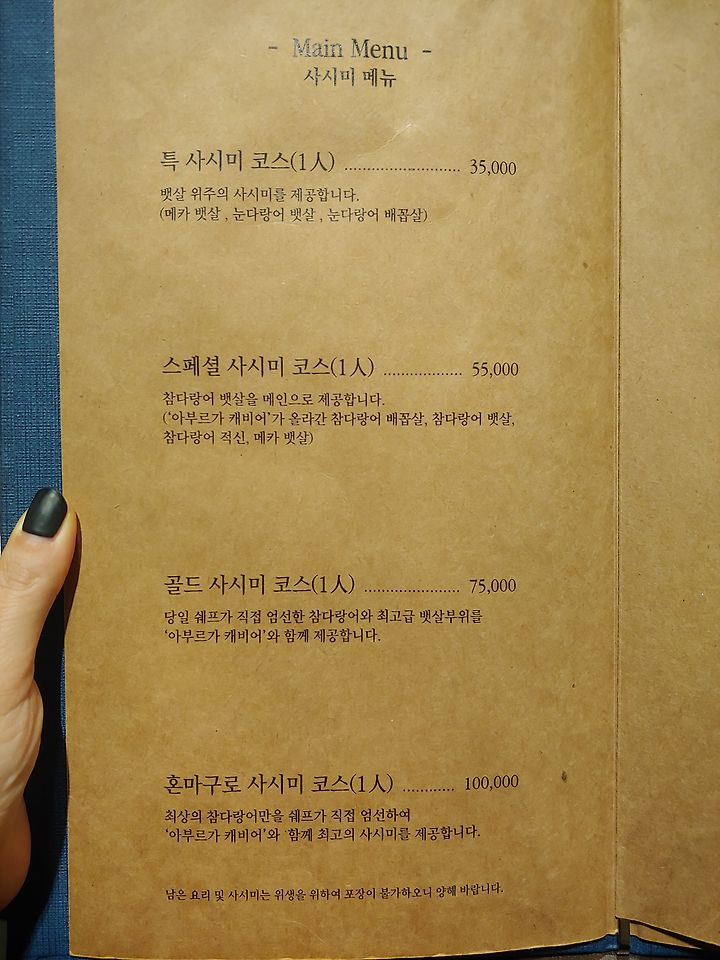 - Main Menu -
사시미 메뉴
특 사시미 코스(1人) ........................... 35,000
뱃살 위주의 사시미를 제공합니다.
(메카 뱃살 , 눈다랑어 뱃살 , 눈다랑어 배꼽살)
스페셜 사시미 코스(1人) .................. 55,000
참다랑어 뱃살을 메인으로 제공합니다.
('아부르가 캐비어'가 올라간 참다랑어 배꼽살, 참다랑어 뱃살,
참다랑어 적신, 메카 뱃살)
골드 사시미 코스(1人) ...................... 75,000
당일 쉐프가 직접 엄선한 참다랑어와 최고급 뱃살부위를
'아부르가 캐비어'와 함께 제공합니다.
혼마구로 사시미 코스(1人) ............ 100,000
최상의 참다랑어만을 쉐프가 직접 엄선하여
'아부르가 캐비어'와 함께 최고의 사시미를 제공합니다.
남은 요리 및 사시미는 위생을 위하여 포장이 불가하오니 양해 바랍니다.